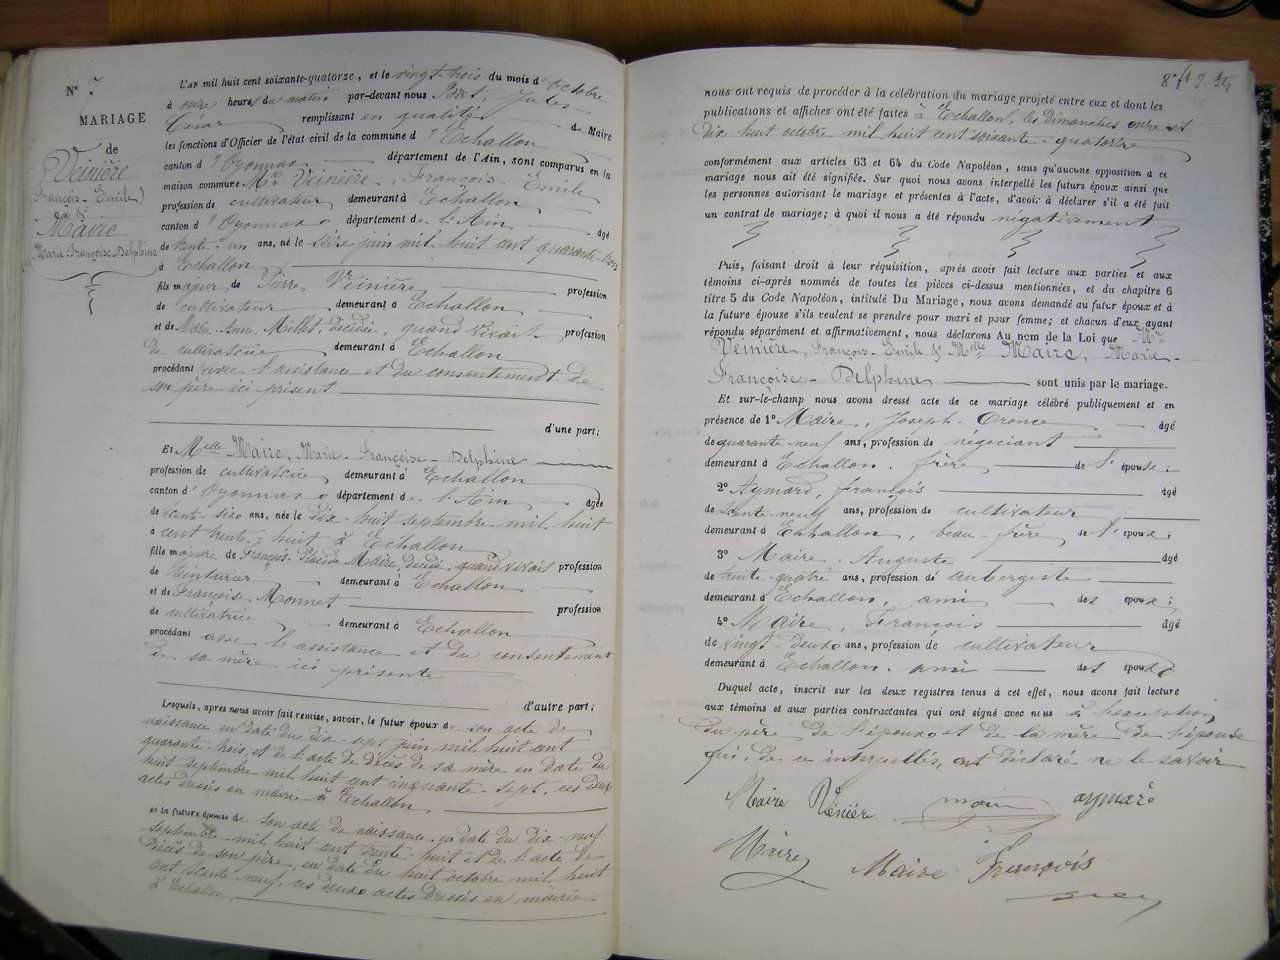 N°
MARIAGE
de
Veinière
François-Emile
&
Maire
Marie-Françoise-Delphine
L'AN mil huit cent soixante-quatorze, et le vingt-trois du mois d'octobre
à onze heures du matin par-devant nous Bret, Jules-
César remplissant en qualité de Maire
les fonctions d'Officier de l'état civil de la commune d'Echallon
canton d'Oyonnax département de l'Ain, sont comparus en la
maison commune Mr Veinière, François-Emile
profession de cultivateur demeurant à Echallon
canton d'Oyonnax département de l'Ain âgé
de trente-un ans, né le seize juin mil huit cent quarante-trois
à Echallon
fils majeur de Pierre Veinière profession
de cultivateur demeurant à Echallon
et de Marie-Anne Millet, décédée quand vivait profession
de cultivatrice demeurant à Echallon
procédant avec l'assistance et du consentement de
son père ici présent
d'une part;
Et Melle Maire, Marie-Françoise-Delphine
profession de cultivatrice demeurant à Echallon
canton d'Oyonnax département de l'Ain âgée
de trente-six ans, née le dix-huit septembre mil huit
cent trente-huit à Echallon
fille majeure de François-Placide Maire, décédé, quand vivait profession
de teinturier demeurant à Echallon
et de Françoise Monnet profession
de cultivatrice demeurant à Echallon
procédant avec l'assistance et du consentement
de sa mère ici présente
d'autre part;
Lesquels, après nous avoir fait remise, savoir, le futur époux de son acte de
naissance en date du dix-sept juin mil huit cent
quarante-trois, et de l'acte de décès de sa mère en date du
huit septembre mil huit cent cinquante-sept, ces deux
actes dressés en mairie à Echallon
et la future épouse de son acte de naissance en date du dix-neuf
septembre mil huit cent trente-huit et de l'acte de
décès de son père, en date du huit octobre mil huit
cent soixante neuf, ces deux actes dressés en mairie
à Echallon
nous ont requis de procéder à la célébration du mariage projeté entre eux et dont les
publications et affiches ont été faites à Echallon, les Dimanches onze et
dix huit octobre mil huit cent soixante-quatorze
conformément aux articles 63 et 64 du Code Napoléon, sans qu'aucune opposition a ce
mariage nous ait été signifiée. Sur quoi nous avons interpellé les futurs époux ainsi que
les personnes autorisant le mariage et présentes à l'acte, d'avoir à déclarer s'il a été fait
un contrat de mariage; à quoi il nous a été répondu négativement
Puis, faisant droit à leur réquisition, après avoir fait lecture aux parties et aux
témoins ci-après nommés de toutes les pièces ci-dessus mentionnées, et du chapitre 6
titre 5 du Code Napoléon, intitulé Du Mariage, nous avons demandé au futur époux et à
la future épouse s'ils veulent se prendre pour mari et pour femme; et chacun d'eux ayant
répondu séparément et affirmativement, nous déclarons Au nom de la Loi que Mr
Veinière, François-Emile & Melle Maire, Marie-
Françoise-Delphine sont unis par le mariage.
Et sur-le-champ nous avons dressé acte de ce mariage célébré publiquement et en
présence de 1° Maire, Joseph-Oronce âgé
de quarante-neuf ans, profession de négociant
demeurant à Echallon, frère de l'épouse;
2° Aymard, François âgé
de trente-neuf ans, profession de cultivateur
demeurant à Echallon, beau-frère de l'épouse;
3° Maire, Auguste âgé
de trente-quatre ans, profession de aubergiste
demeurant à Echallon, ami des époux;
4° Maire, François âgé
de vingt-deux ans, profession de cultivateur
demeurant à Echallon, ami des époux
Duquel acte, inscrit sur les deux registres tenus à cet effet, nous avons fait lecture
aux témoins et aux parties contractantes qui ont signé avec nous à l'exception
du père de l'époux et de la mère de l'épouse
qui, de ce interpellés, ont déclaré ne le savoir
Maire Vénièr maire aymard
Maire Maire François